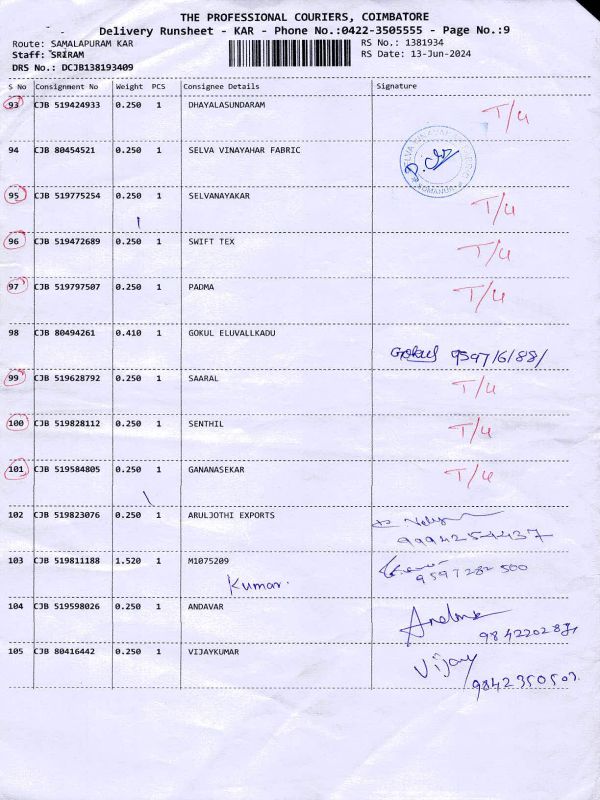 THE PROFESSIONAL COURIERS, COIMBATORE
Delivery Runsheet - KAR - Phone No.:0422-3505555 - Page No.:9
Route: SAMALAPURAM KAR
RS No.: 1381934
Staff: SRIRAM
RS Date: 13-Jun-2024
DRS No.: DCJB138193409
S No Consignment No Weight PCS Consignee Details Signature
93 CJB 519424933 0.250 1 DHAYALASUNDARAM T/4
94 CJB 80454521 0.250 1 SELVA VINAYAHAR FABRIC
95 CJB 519775254 0.250 1 SELVANAYAKAR T/4
96 CJB 519472689 0.250 1 SWIFT TEX T/4
97 CJB 519797507 0.250 1 PADMA T/4
98 CJB 80494261 0.410 1 GOKUL ELUVALLKADU
Gokul 9597161881
99 CJB 519628792 0.250 1 SAARAL T/4
100 CJB 519828112 0.250 1 SENTHIL T/4
101 CJB 519584805 0.250 1 GANANASEKAR T/4
102 CJB 519823076 0.250 1 ARULJOTHI EXPORTS
9994254437
103 CJB 519811188 1.520 1 M1075209
Kumar. 9597282500
104 CJB 519598026 0.250 1 ANDAVAR
105 CJB 80416442 0.250 1 VIJAYKUMAR Vijay